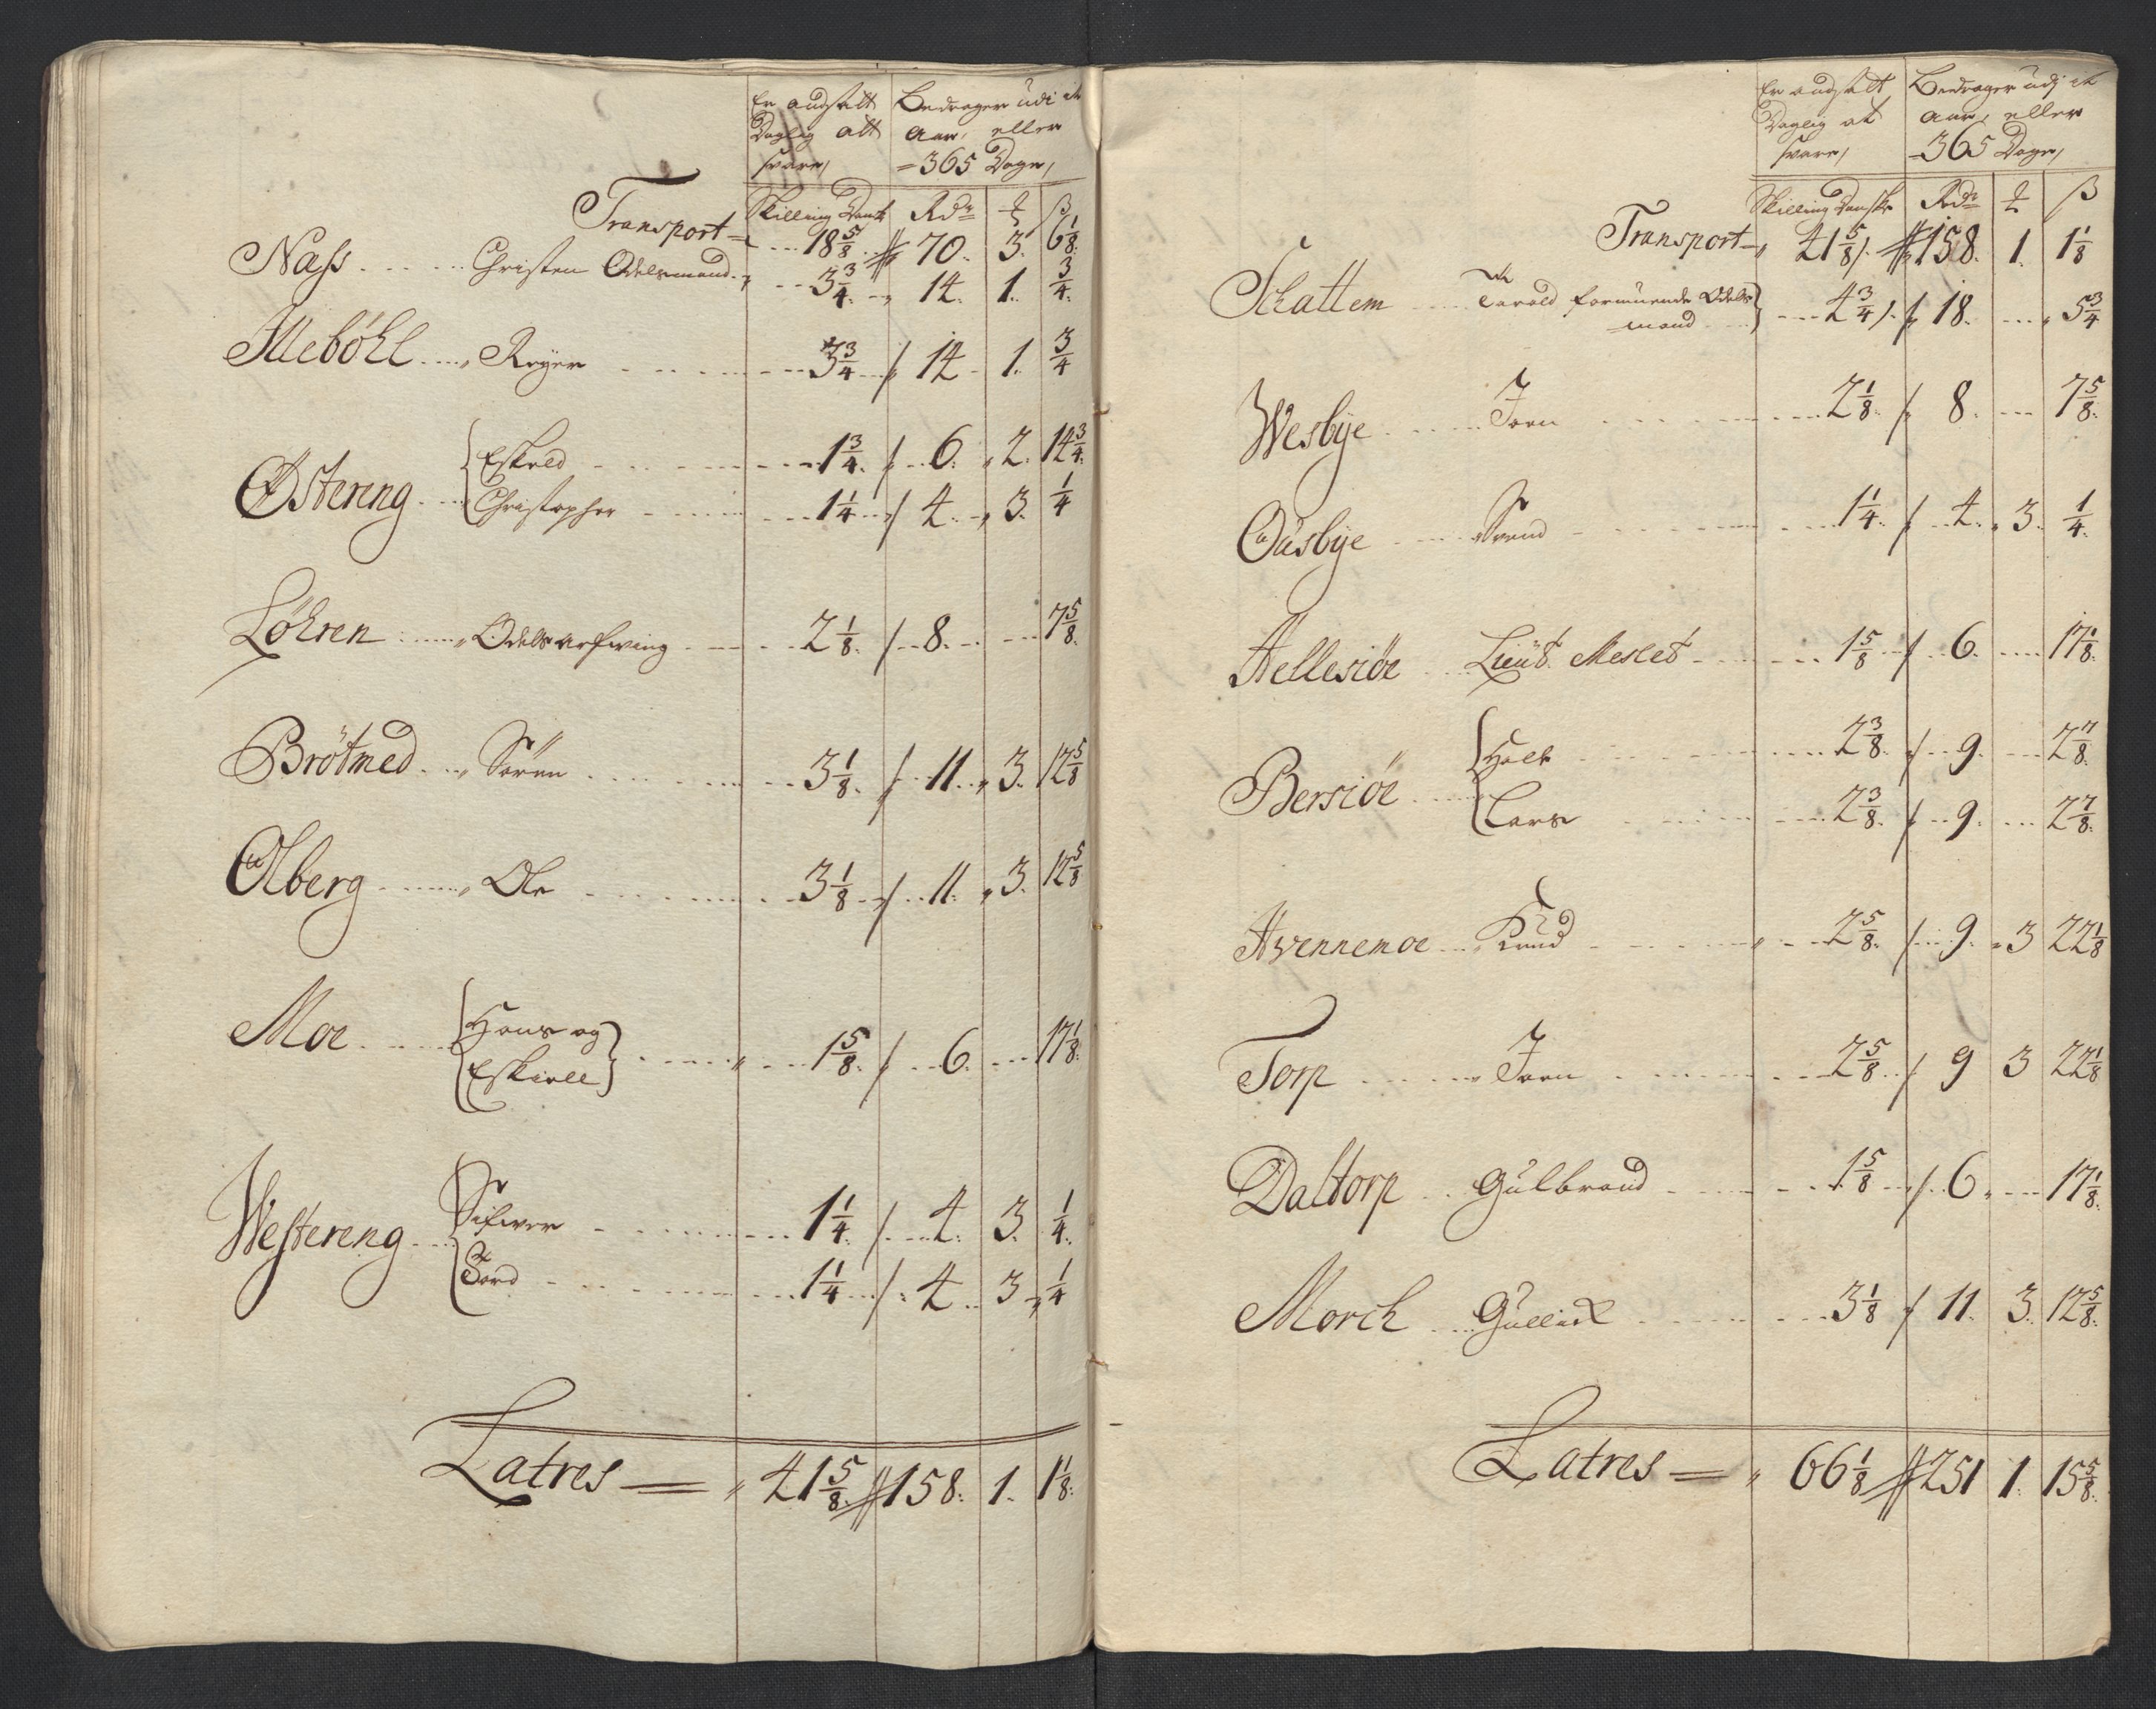 Er andsatt Daglig att svare / Bedrager udi et Aar, eller =365 Dage /
Skilling Dansk Rdr ß
Transport = 18 5/8 70. 3. 6 1/8
Nass Christen Odelsmand 3 3/4 14. 1. 3/4
Reyer 3 3/4 14 1. 3/4
Østereng Eskeld 1 3/4 6. 2. 14 3/4
Christopher 1 1/4 4. 3. 1/4
Løhren Odels arfwing 2 1/8 8. 7 5/8
Brötmed Sören 3 1/8 11. 3. 12 5/8
Olberg Ole 3 1/8 11. 3. 12 5/8
Moe Hans og Eskiell 1 5/8 6. 17 1/8
Westereng Sifwer 1 1/4 4. 3. 1/4
Tord 1 1/4 4. 3 1/4
Latres = 41 5/8 158. 1. 1 1/8
Er andsatt Daglig at svare / Bedrager udj et Aar, eller =365 Dage /
Skilling Danske Rdr ß
Transport = 41 5/8 158. 1. 1 1/8
Schattem Tarald formuende Odels mand 4 3/4 18. 5 3/4
Wesbye Joen 2 1/8 8. 7 5/8
Oúsbye Svend 1 1/4 4. 3. 1/4
Hellesiöe Lieut. Meslet 1 5/8 6. 17 1/8
Bersiöe Halv 2 3/8 9. 2 7/8
Lars 2 3/8 9. 2 7/8
Hvennemoe Knud 2 5/8 9. 3 22 1/8
Torp Joen 2 5/8 9 3 22 1/8
Daltorp Gulbrand 1 5/8 6. 17 1/8
Morch Gullick 3 1/8 11. 3. 12 5/8
Latres = 66 1/8 251 1. 15 5/8